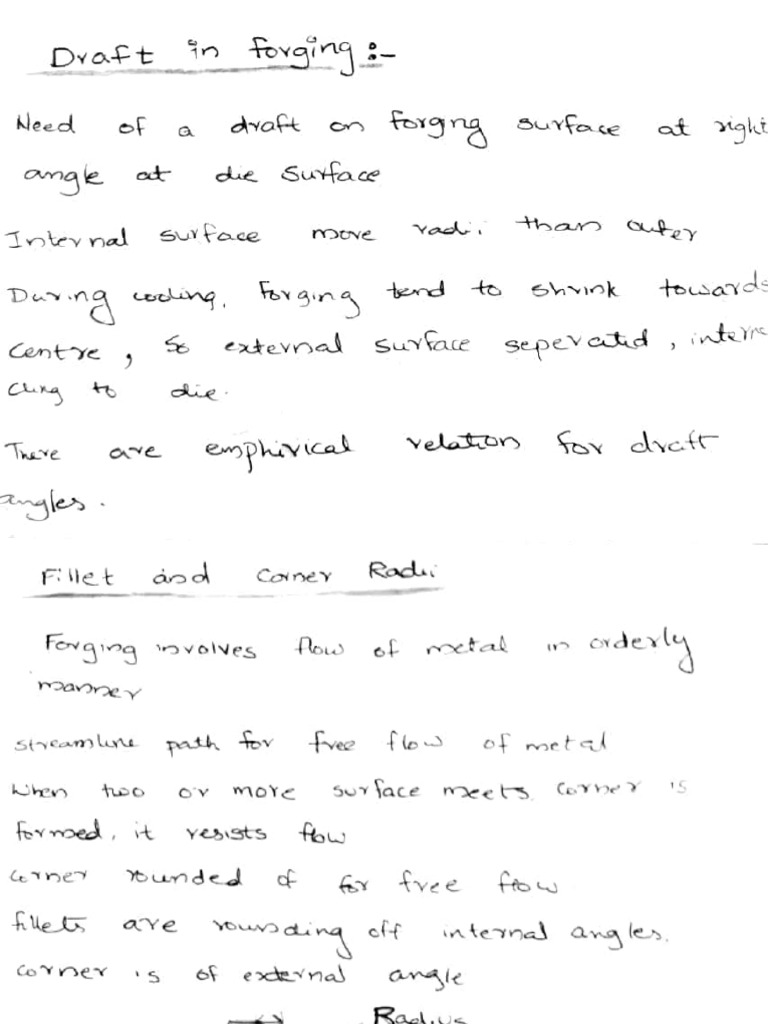 Draft in forging :-
Need of a draft on forging surface at right
angle at die surface
Internal surface more radii than outer
During cooling, Forging tend to shrink towards
Centre, So external surface seperated, interna
cling to die.
There are emphirical relation for draft
angles.
Fillet and Corner Radii
Forging involves flow of metal in orderly
manner
streamline path for free flow of metal
When two or more surface meets corner is
formed, it resists flow
corner rounded of for free flow
fillets are rounding off internal angles.
corner is of external angle
Radius